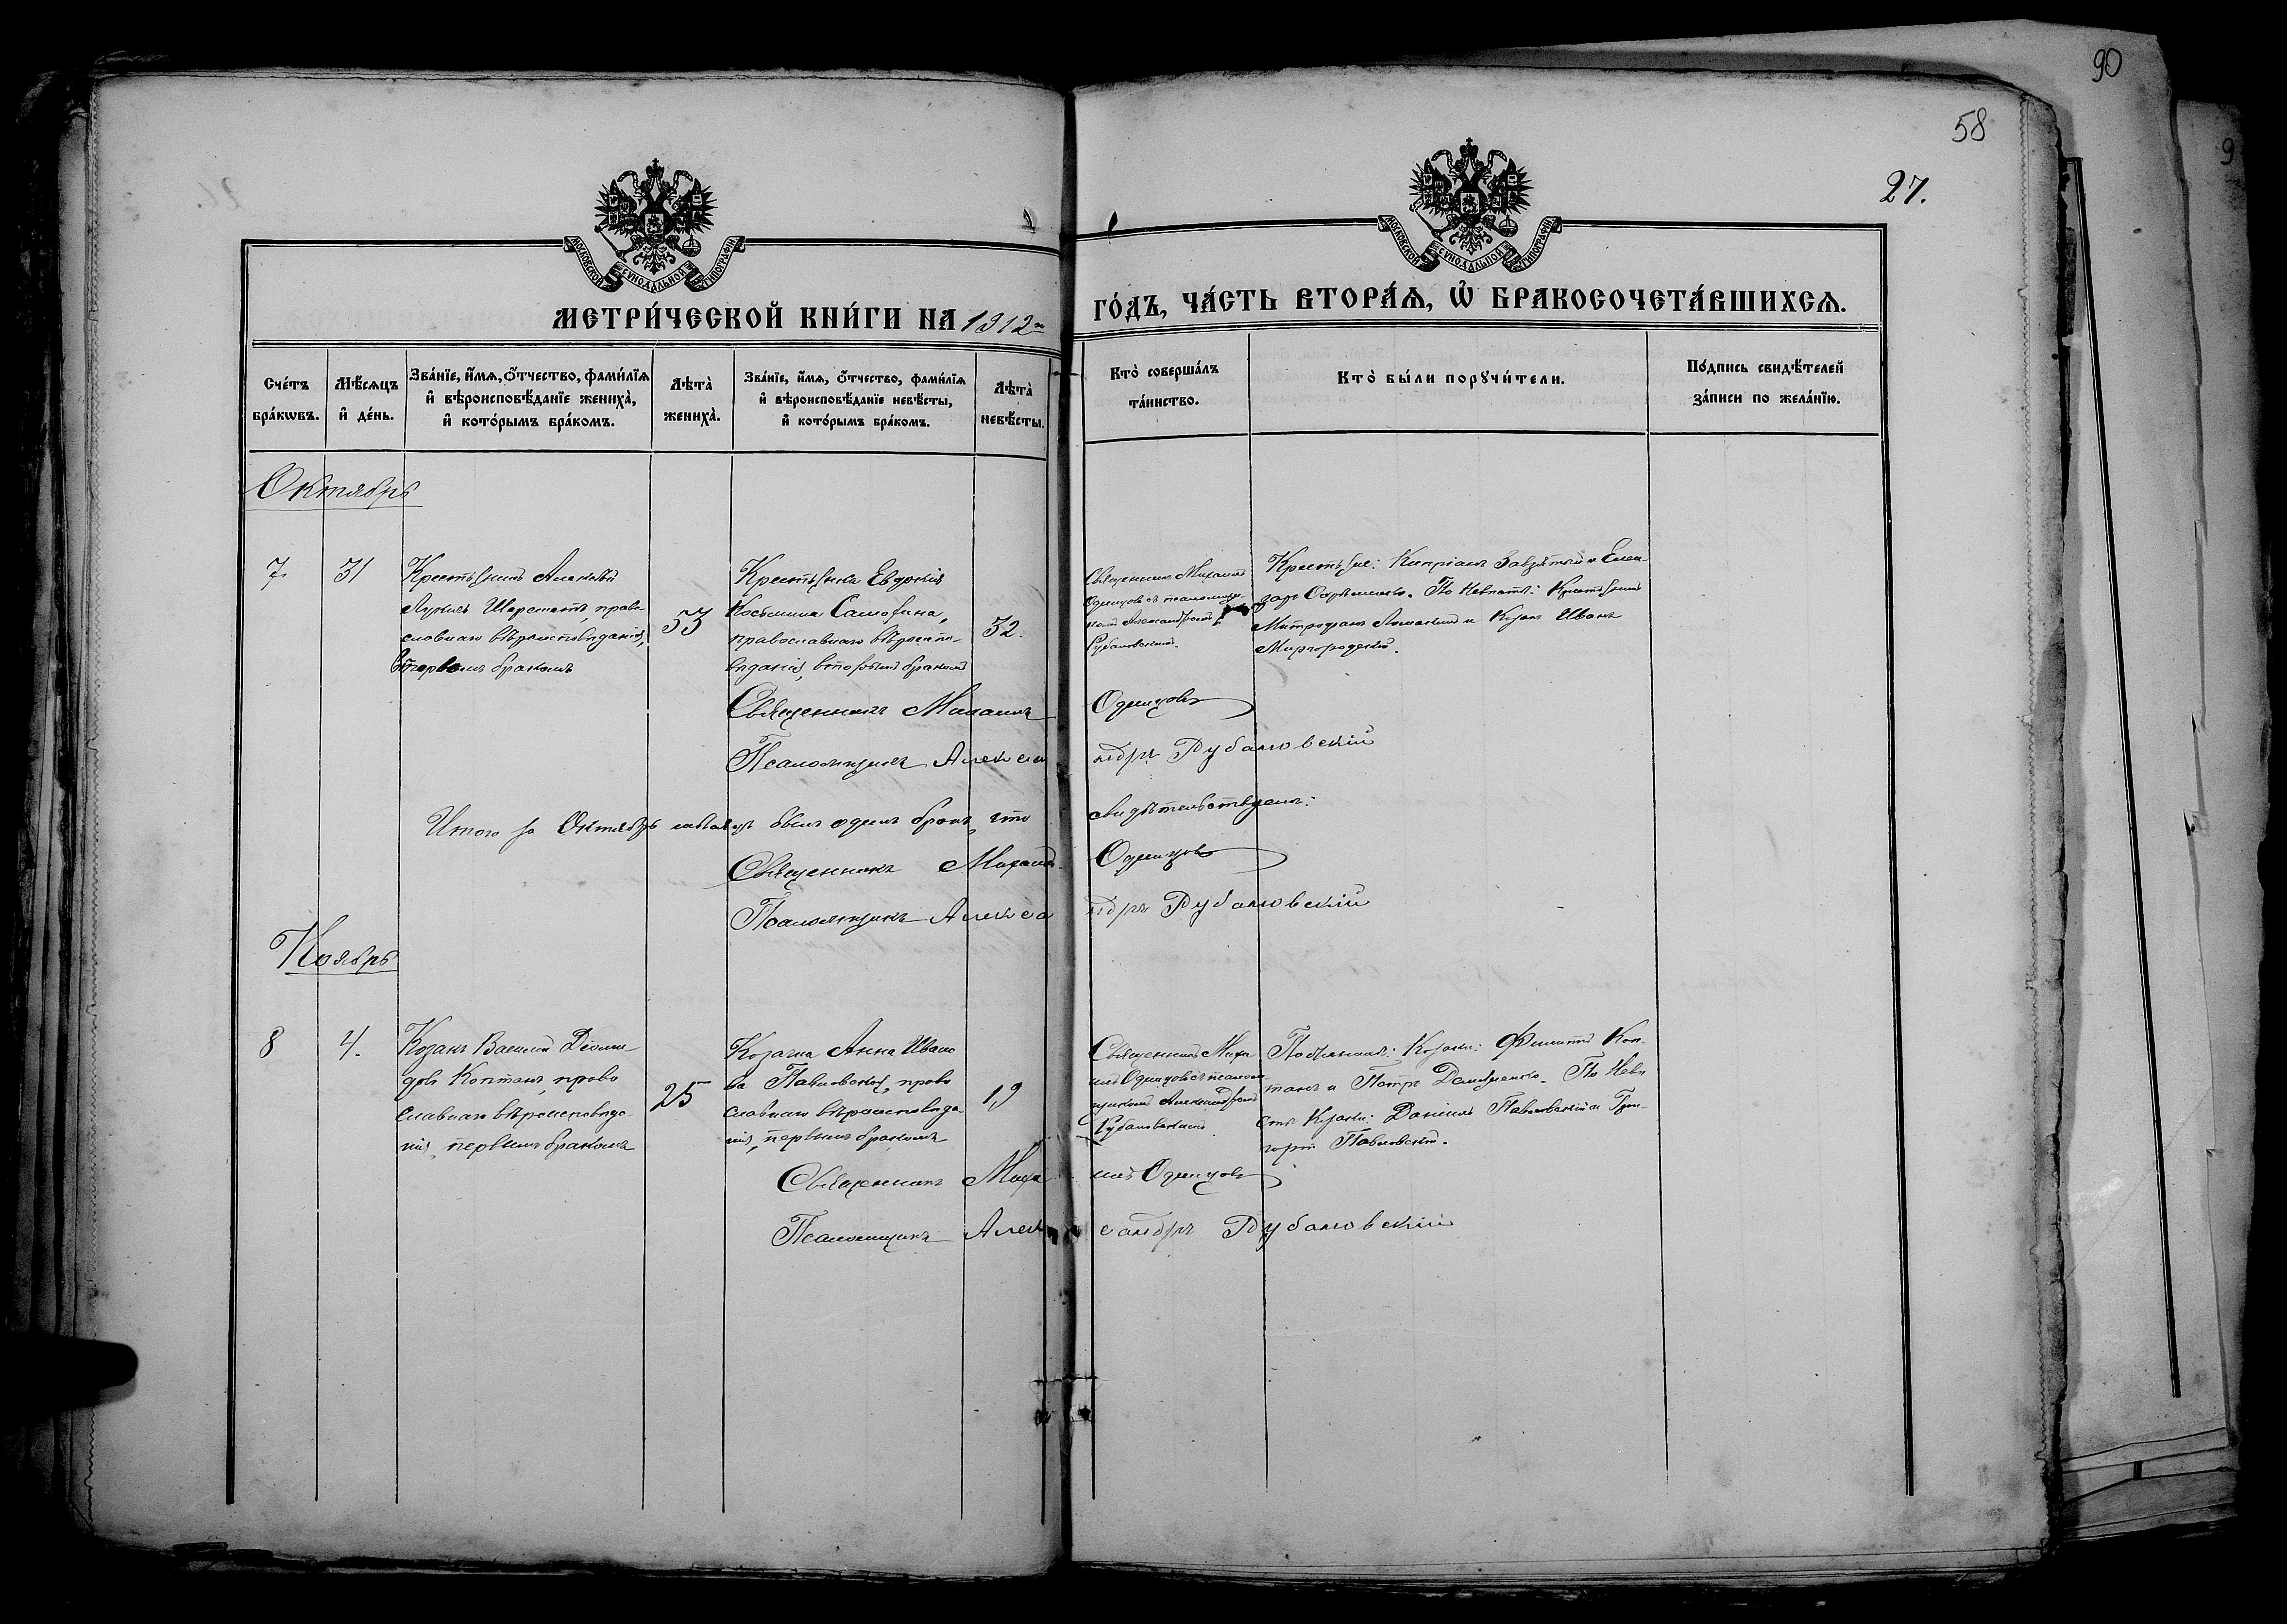 90
58
27.
9
МОСКОВСКОЙ СѴНОДАЛЬНОЙ ТИПОГРАФІИ
МОСКОВСКОЙ СѴНОДАЛЬНОЙ ТИПОГРАФІИ
МЕТРИ́ЧЕСКОЙ КНИ́ГИ НА 1912 го́дъ, ча́сть втора́ѧ, ѡ҆ бракосочета́вшихсѧ.
Сче́тъ бра́кѡвъ.
Мѣ́сѧцъ и҆ де́нь.
Зва́нїе, и҆́мѧ, ѻ҆́тчество, фами́лїѧ и҆ вѣроисповѣ́данїе жениха̀, и҆ кото́рымъ бра́комъ.
Лѣта̀ жениха̀.
Зва́нїе, и҆́мѧ, ѻ҆́тчество, фами́лїѧ и҆ вѣроисповѣ́данїе невѣ́сты, и҆ кото́рымъ бра́комъ.
Лѣта̀ невѣ́сты.
Кто̀ соверша́лъ та́инство.
Кто̀ бы́ли порꙋчи́тели.
По́дпись свидѣ́телей за́писи по жела́нїю.
Октябрь
7
31
Крестьянинъ Алексѣй
Лукинъ Шереметъ, право-
славнаго вѣроисповѣданія,
вторымъ бракомъ
53
Крестьянка Евдокія
Косьмина Самофина,
православнаго вѣроиспо-
вѣданія, вторымъ бракомъ
32.
Священникъ Михаилъ
Одинцовъ съ псаломщи-
комъ Александромъ
Рубановскимъ.
Крестьяне: Кипріанъ Завзятый и Елеа-
заръ По невѣстѣ: Крестьянинъ
Митрофанъ и Козакъ Иванъ
Миргородскій.
Священникъ Михаилъ Одинцовъ
Псаломщикъ Александръ Рубановскій
Итого за Октябрь мѣсяцъ былъ одинъ бракъ, что свидѣтельствуемъ:
Священникъ Михаилъ Одинцовъ
Псаломщикъ Александръ Рубановскій
Ноябрь
8
4.
Козакъ Василій Діоми-
довъ Коптанъ, право
славнаго вѣроисповѣда-
нія, первымъ бракомъ
25
Козачка Анна Ивано
ва Павловская, право
славнаго вѣроисповѣда-
нія, первымъ бракомъ
19
Священникъ Миха
илъ Одинцовъ съ псалом-
щикомъ Александромъ
Рубановскимъ
По женихѣ: Козаки: Филиппъ Коп-
танъ и Петръ Демьяненко. По невѣ
стѣ Козаки: Даніилъ Павловскій и Гри-
горій Павловскій.
Священникъ Михаилъ Одинцовъ
Псаломщикъ Александръ Рубановскій